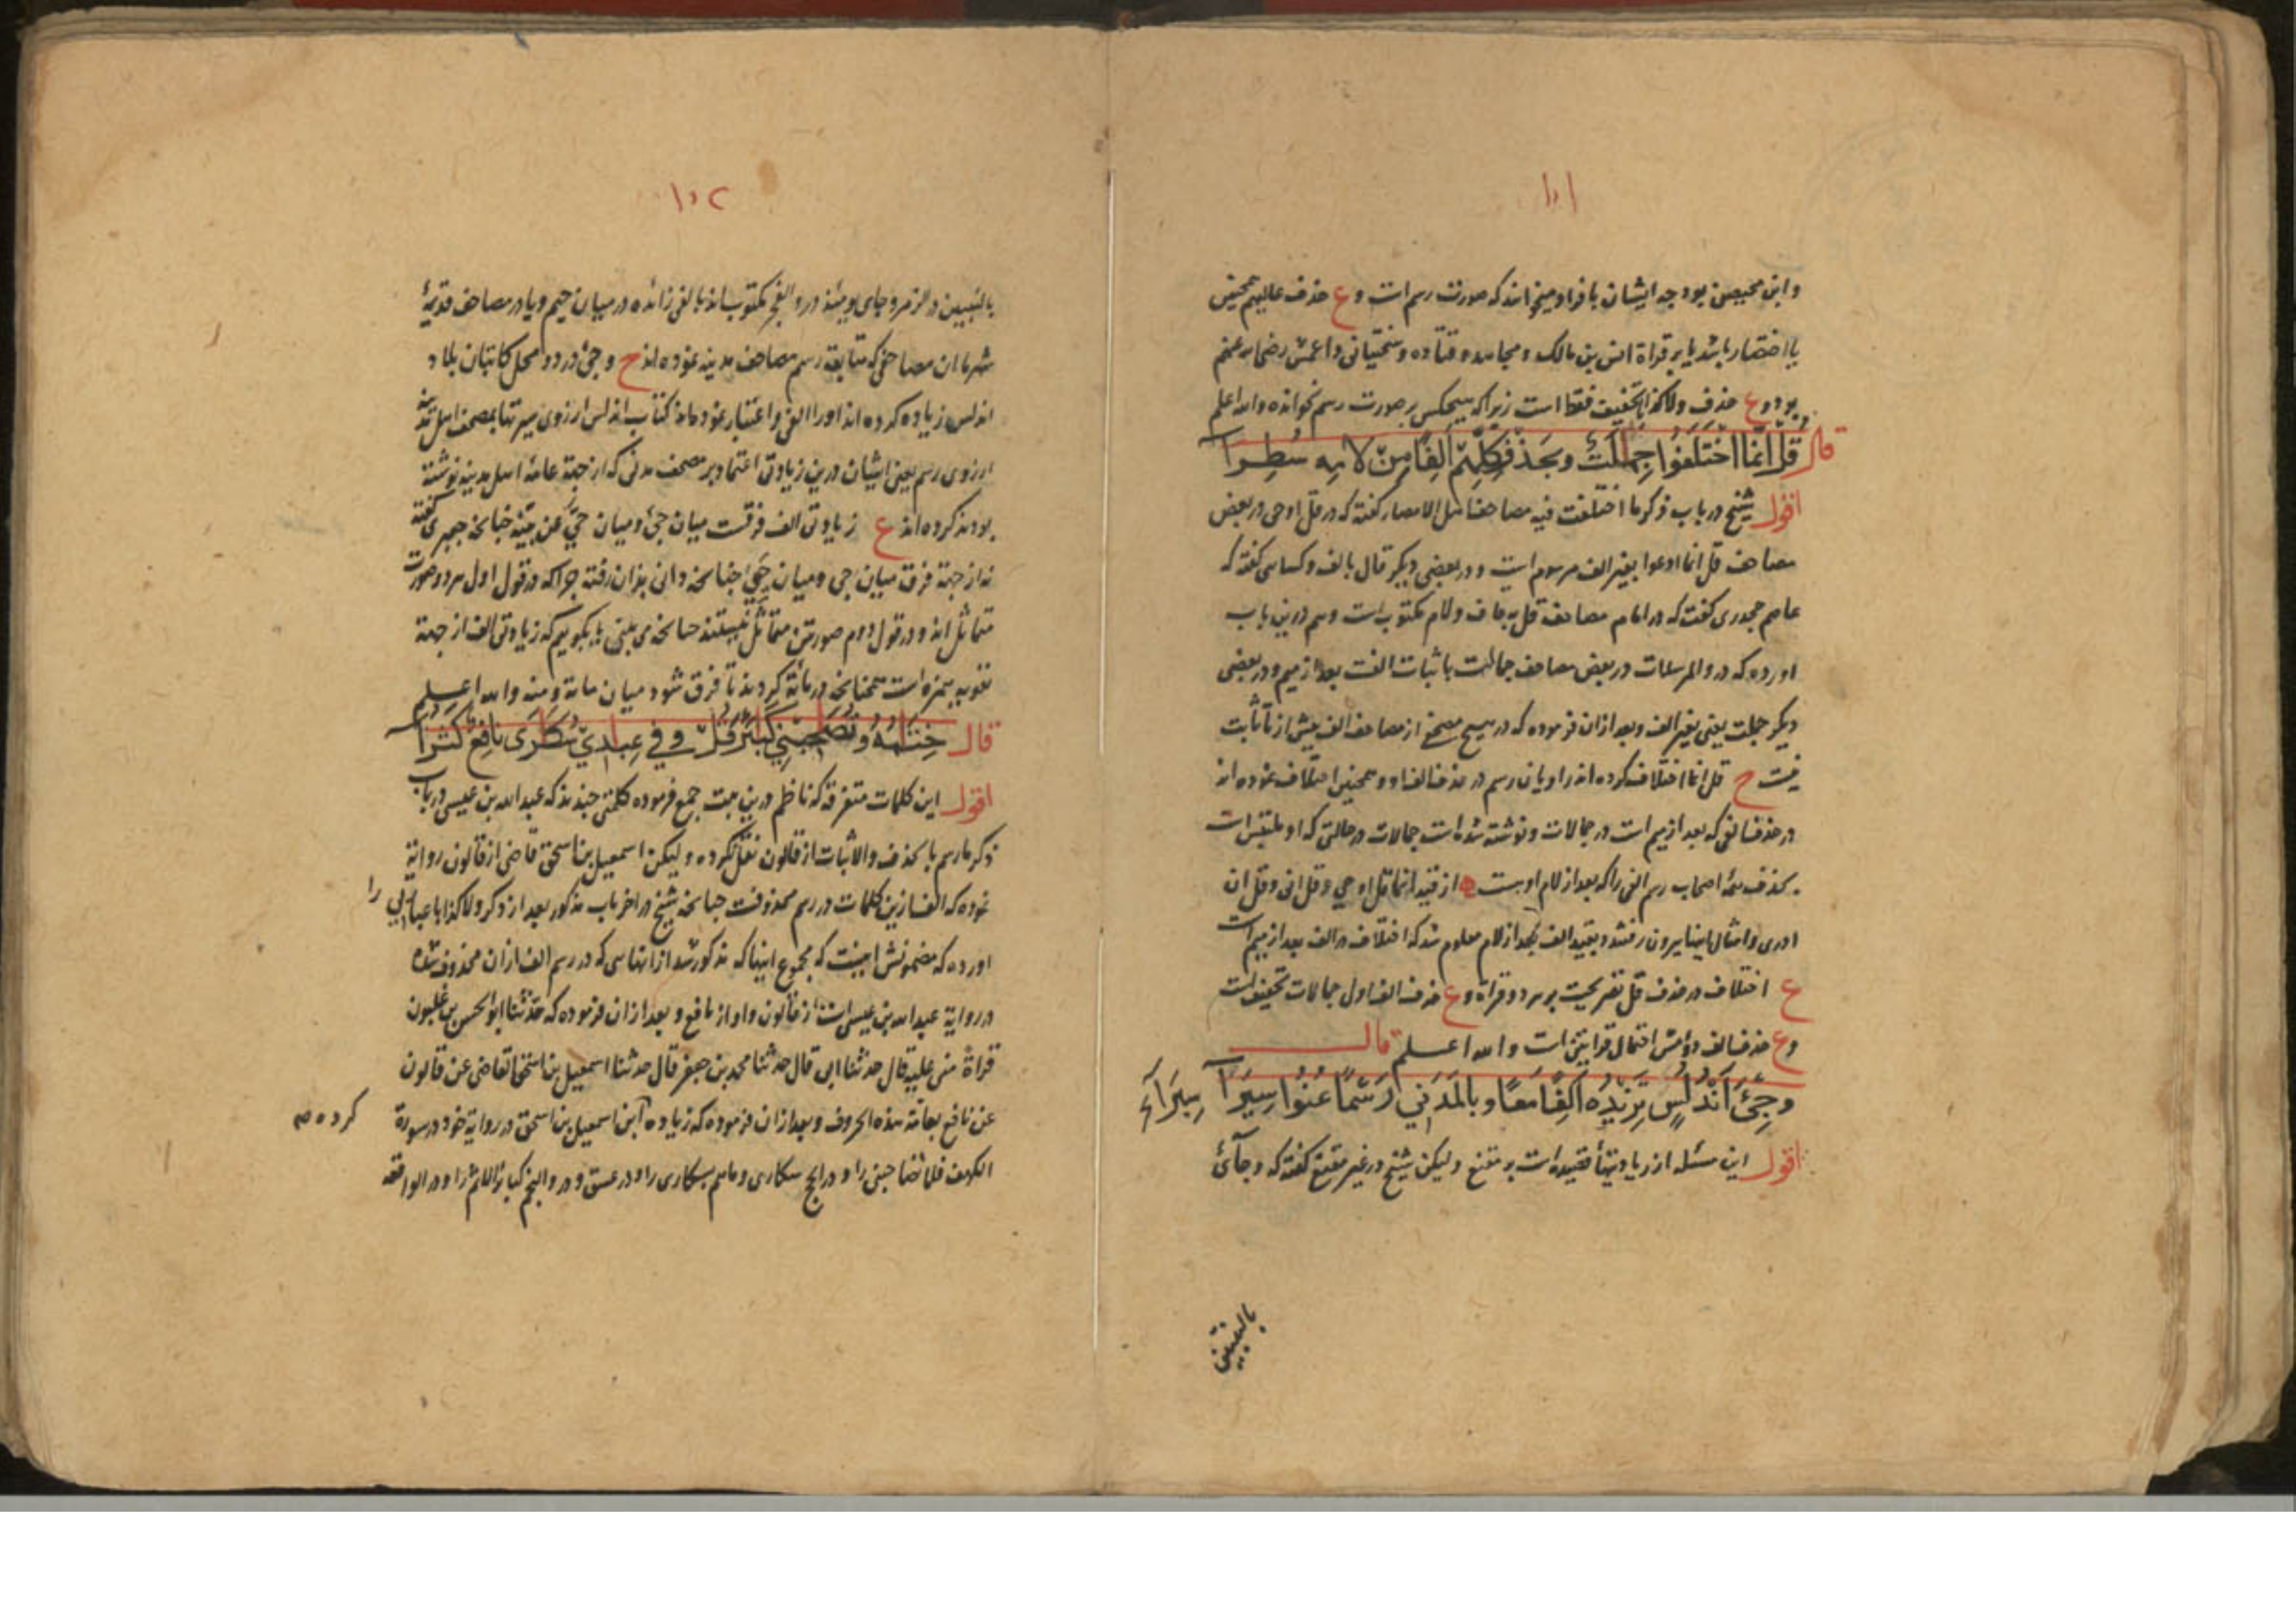 ۱۰۱
وابن محیصن بود چه ایشان بافراد میخوانند که صورت رسم است و ع حذف عالیهم همچنین
یا اختصار باشد یا بر قراة انس بن مالک و مجاهد و قتاده و سختیانی و اعمش رضی الله عنهم
بود و ع حذف ولا کذابا تخفیف فقط است زیرا که هیچکس بر صورت رسم نخوانده والله اعلم
قال قل انما اختلفوا جمالت وبحذف کلهم الفا من لامه سطرا
اقول شیخ در باب ذکر ما اختلفت فیه مصاحف اهل الامصار گفته که در قل اوحی در بعض
مصاحف قل انما ادعوا بغیر الف مرسوم است و در بعضی دیگر قال بالف و کسایی گفته که
عاصم جحدری گفت که در امام مصاحف قل بقاف و لام مکتوب است و هم درین باب
اورده که در والمرسلات در بعض مصاحف جمالت باثبات الف بعد از میم و در بعضی
دیگر جملت یعنی بغیر الف و بعد ازان فرموده که در هیچ مصحفی از مصاحف الف پیش از تا ثابت
نیست ح قل انما اختلاف کرده اند راویان رسم در حذف الف او و همچنین اختلاف نموده اند
در حذف الفی که بعد از میم است در جمالات و نوشته شده است جمالات در حالتی که او ملتبس است
بحذف همهٔ اصحاب رسم الفی را که بعد از لام اوست از قید انما قل اوحی و قل انی و قل ان
ادری و امثال اینها بیرون رفتند و بقید الف بعد از لام معلوم شد که اختلاف در الف بعد از میم است
ع اختلاف در حذف قل تصریحست بر هر دو قراة و ع حذف الف اول جمالات تخفیف است
و ع حذف الف دومش احتمال قرایتین است والله اعلم قال
وجیء اندلس تزیده الفا معا وبالمدنی رسما عنوا سیرا سیراء
اقول این مسئله از زیادتیهاء عقیده است بر مقنع و لیکن شیخ در غیر مقنع گفته که و جآئ
بالنبیین
۱۰۲
بالنبیین در الزمر و جای یومئذ در والفجر مکتوب اند بالفی زائده در میان جیم و یا در مصاحف قدیمهٔ
شهر ما ان مصاحفی که متابعة رسم مصاحف مدینه نموده اند ح وجیء در دو محل کاتبان بلاد
اندلس زیاده کرده اند او را الفی و اعتبار نموده اند کتاب اندلس از روی سیرتها بمصحف اهل مدینه
از روی رسم یعنی ایشان درین زیادتی اعتماد بر مصحف مدنی که از جهة عامهٔ اهل مدینه نوشته
بودند کرده اند ع زیادتی الف فرقست میان جیء و میان حی عن بینة چنانچه جعبری گفته
نه از جهة فرق میان جی و میان حتی چنانچه دانی بران رفته چراکه در قول اول هر دو صورت
متماثل اند و در قول دوم صورتین متماثل نیستند چنانچه می بینی یا بگوییم که زیادتی الف از جهة
تقویه همزه است همچنانچه در مائة کردند تا فرق شود میان مائة و منه والله اعلم
قال ختامه وتصحبنی کبائر قل وفی عبادی سکاری نافع کثرا
اقول این کلمات متفرقه که ناظم درین بیت جمع فرموده کلمتی چندند که عبدالله بن عیسی در باب
ذکر ما رسم بالحذف والاثبات از قالون نقل نکرده و لیکن اسمعیل بن اسحق قاضی از قالون روایة
نموده که الف ازین کلمات در رسم محذوفست چنانچه شیخ در اخر باب مذکور بعد از ذکر ولا کذابا عبادی را
اورده که مضمونش اینست که مجموع اینها که مذکور شد از انهاسی که در رسم الف ازان محذوف شده
در روایة عبدالله بن عیسی است از قالون و او از نافع و بعد ازان فرموده که حدثنا ابوالحسن بن غلبون
قراة منی علیه قال حدثنا ابی قال حدثنا محمد بن جعفر قال حدثنا اسمعیل بن اسحق القاضی عن قالون
عن نافع بعامة هذه الحروف و بعد ازان فرموده که زیاده کرده صح این اسمعیل بن اسحق در روایة خود در سورة
الکهف فلا تصاحبنی را و در الحج سکاری و ماهم بسکاری را و در عسق و در والنجم کبائر الاثم را و در الواقعه